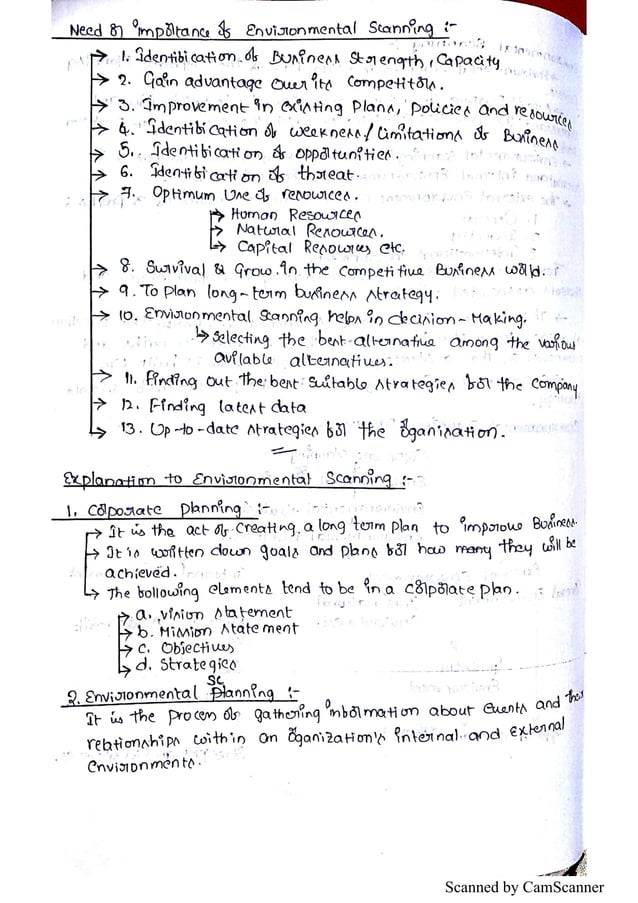 Need or importance of Environmental Scanning :-
→ 1. Identification of Business Strength, Capacity
→ 2. Gain advantage over its competitors.
→ 3. Improvement in existing Plans, policies and resources
→ 4. Identification of weakness/limitations of Business
→ 5. Identification of opportunities.
→ 6. Identification of threat.
→ 7. Optimum Use of resources.
→ Human Resources
→ Natural Resources.
→ Capital Resources etc.
→ 8. Survival & Grow in the competitive Business world.
→ 9. To Plan long-term business strategy.
→ 10. Environmental Scanning helps in decision-Making.
↳ Selecting the best alternative among the various
avilable alternatives.
→ 11. Finding out the best suitable strategies for the company
→ 12. Finding latest data
→ 13. Up-to-date strategies for the organisation.
Explanation to Environmental Scanning :-
1. Corporate planning :-
→ It is the act of creating a long term plan to improve Business.
→ It is written down goals and plans for how many they will be
achieved.
→ The following elements tend to be in a corporate plan.
→ a. vision statement
→ b. Mission statement
→ c. Objectives
→ d. Strategies
2. Environmental Scanning :-
It is the process of gathering information about events and their
relationships within an organization's internal and external
environments.
Scanned by CamScanner